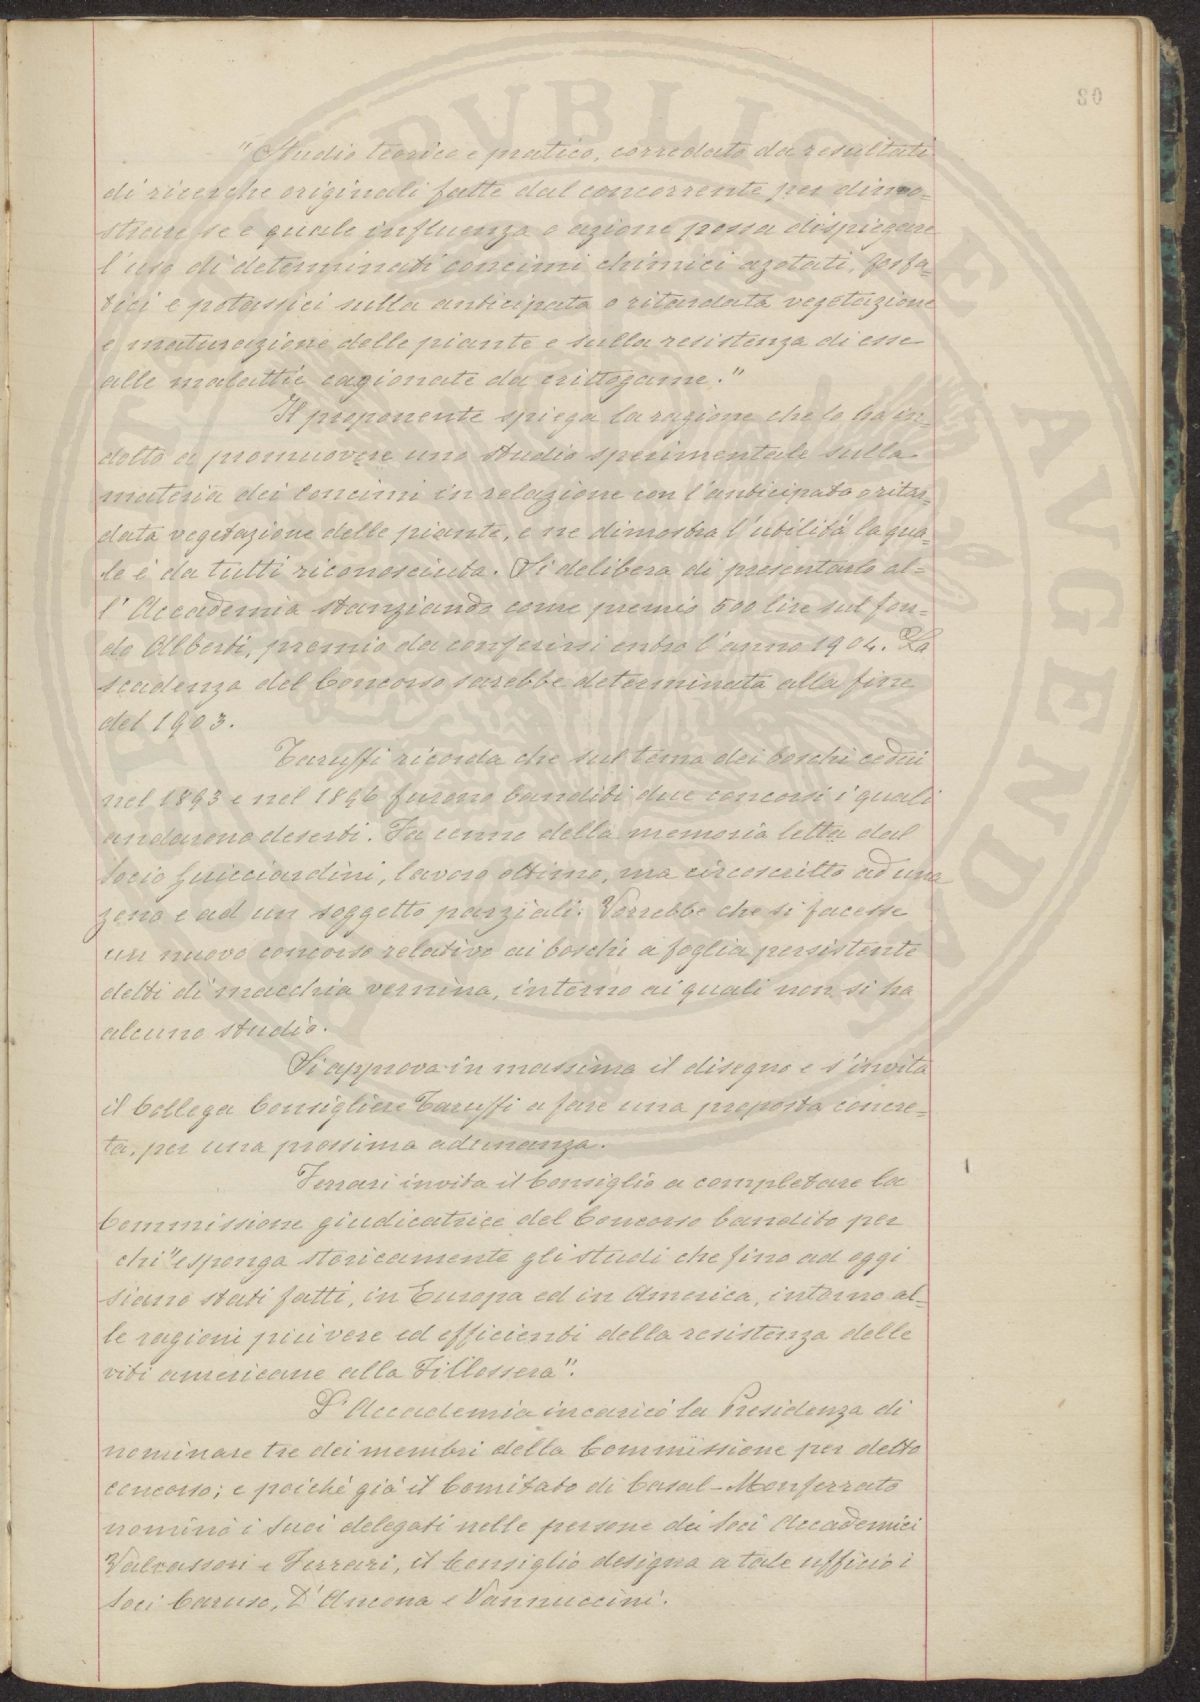 80
"Studio teorico e pratico, corredato da resultati
di ricerche originali fatte dal concorrente per dimo=
strare se e quale influenza o azione possa dispiegare
l'uso di determinati concimi chimici azotati, fosfa=
tici e potassici sulla anticipata o ritardata vegetazione
e maturazione delle piante e sulla resistenza di esse
alle malattie cagionate da crittogame."
Il proponente spiega la ragione che lo ha in=
dotto a promuovere uno studio sperimentale sulla
materia dei Concimi in relazione con l'anticipata o ritar=
data vegetazione delle piante, e ne dimostra l'utilità la qua=
le è da tutti riconosciuta. Si delibera di presentarlo al=
l'Accademia stanziando come premio 500 lire sul fon=
do Alberti, premio da conferirsi entro l'anno 1904. La
scadenza del Concorso sarebbe determinata alla fine
del 1903.
Taruffi ricorda che sul tema dei boschi cedui
nel 1893 e nel 1896 furono banditi due concorsi i quali
andarono deserti. Fa cenno della memoria letta dal
Socio Guicciardini, lavoro ottimo, ma circoscritto ad una
zona e ad un soggetto parziali. Vorrebbe che si facesse
un nuovo concorso relativo ai boschi a foglia persistente
detti di macchia vernina, intorno ai quali non si ha
alcuno studio.
Si approva in massima il disegno e s'invita
il Collega Consigliere Taruffi a fare una proposta concre=
ta, per una prossima adunanza.
Ferrari invita il Consiglio a completare la
Commissione giudicatrice del Concorso bandito per
chi "esponga storicamente gli studi che fino ad oggi
siano stati fatti, in Europa ed in America, intorno al=
le ragioni più vere ed efficienti della resistenza delle
viti americane alla Fillossera".
L'Accademia incaricò la Presidenza di
nominare tre dei membri della Commissione per detto
concorso; e poichè già il Comitato di Casal-Monferrato
nominò i suoi delegati nelle persone dei Soci Accademici
Valvassori e Ferrari, il Consiglio designa a tale ufficio i
Soci Caruso, D'Ancona e Vannuccini.